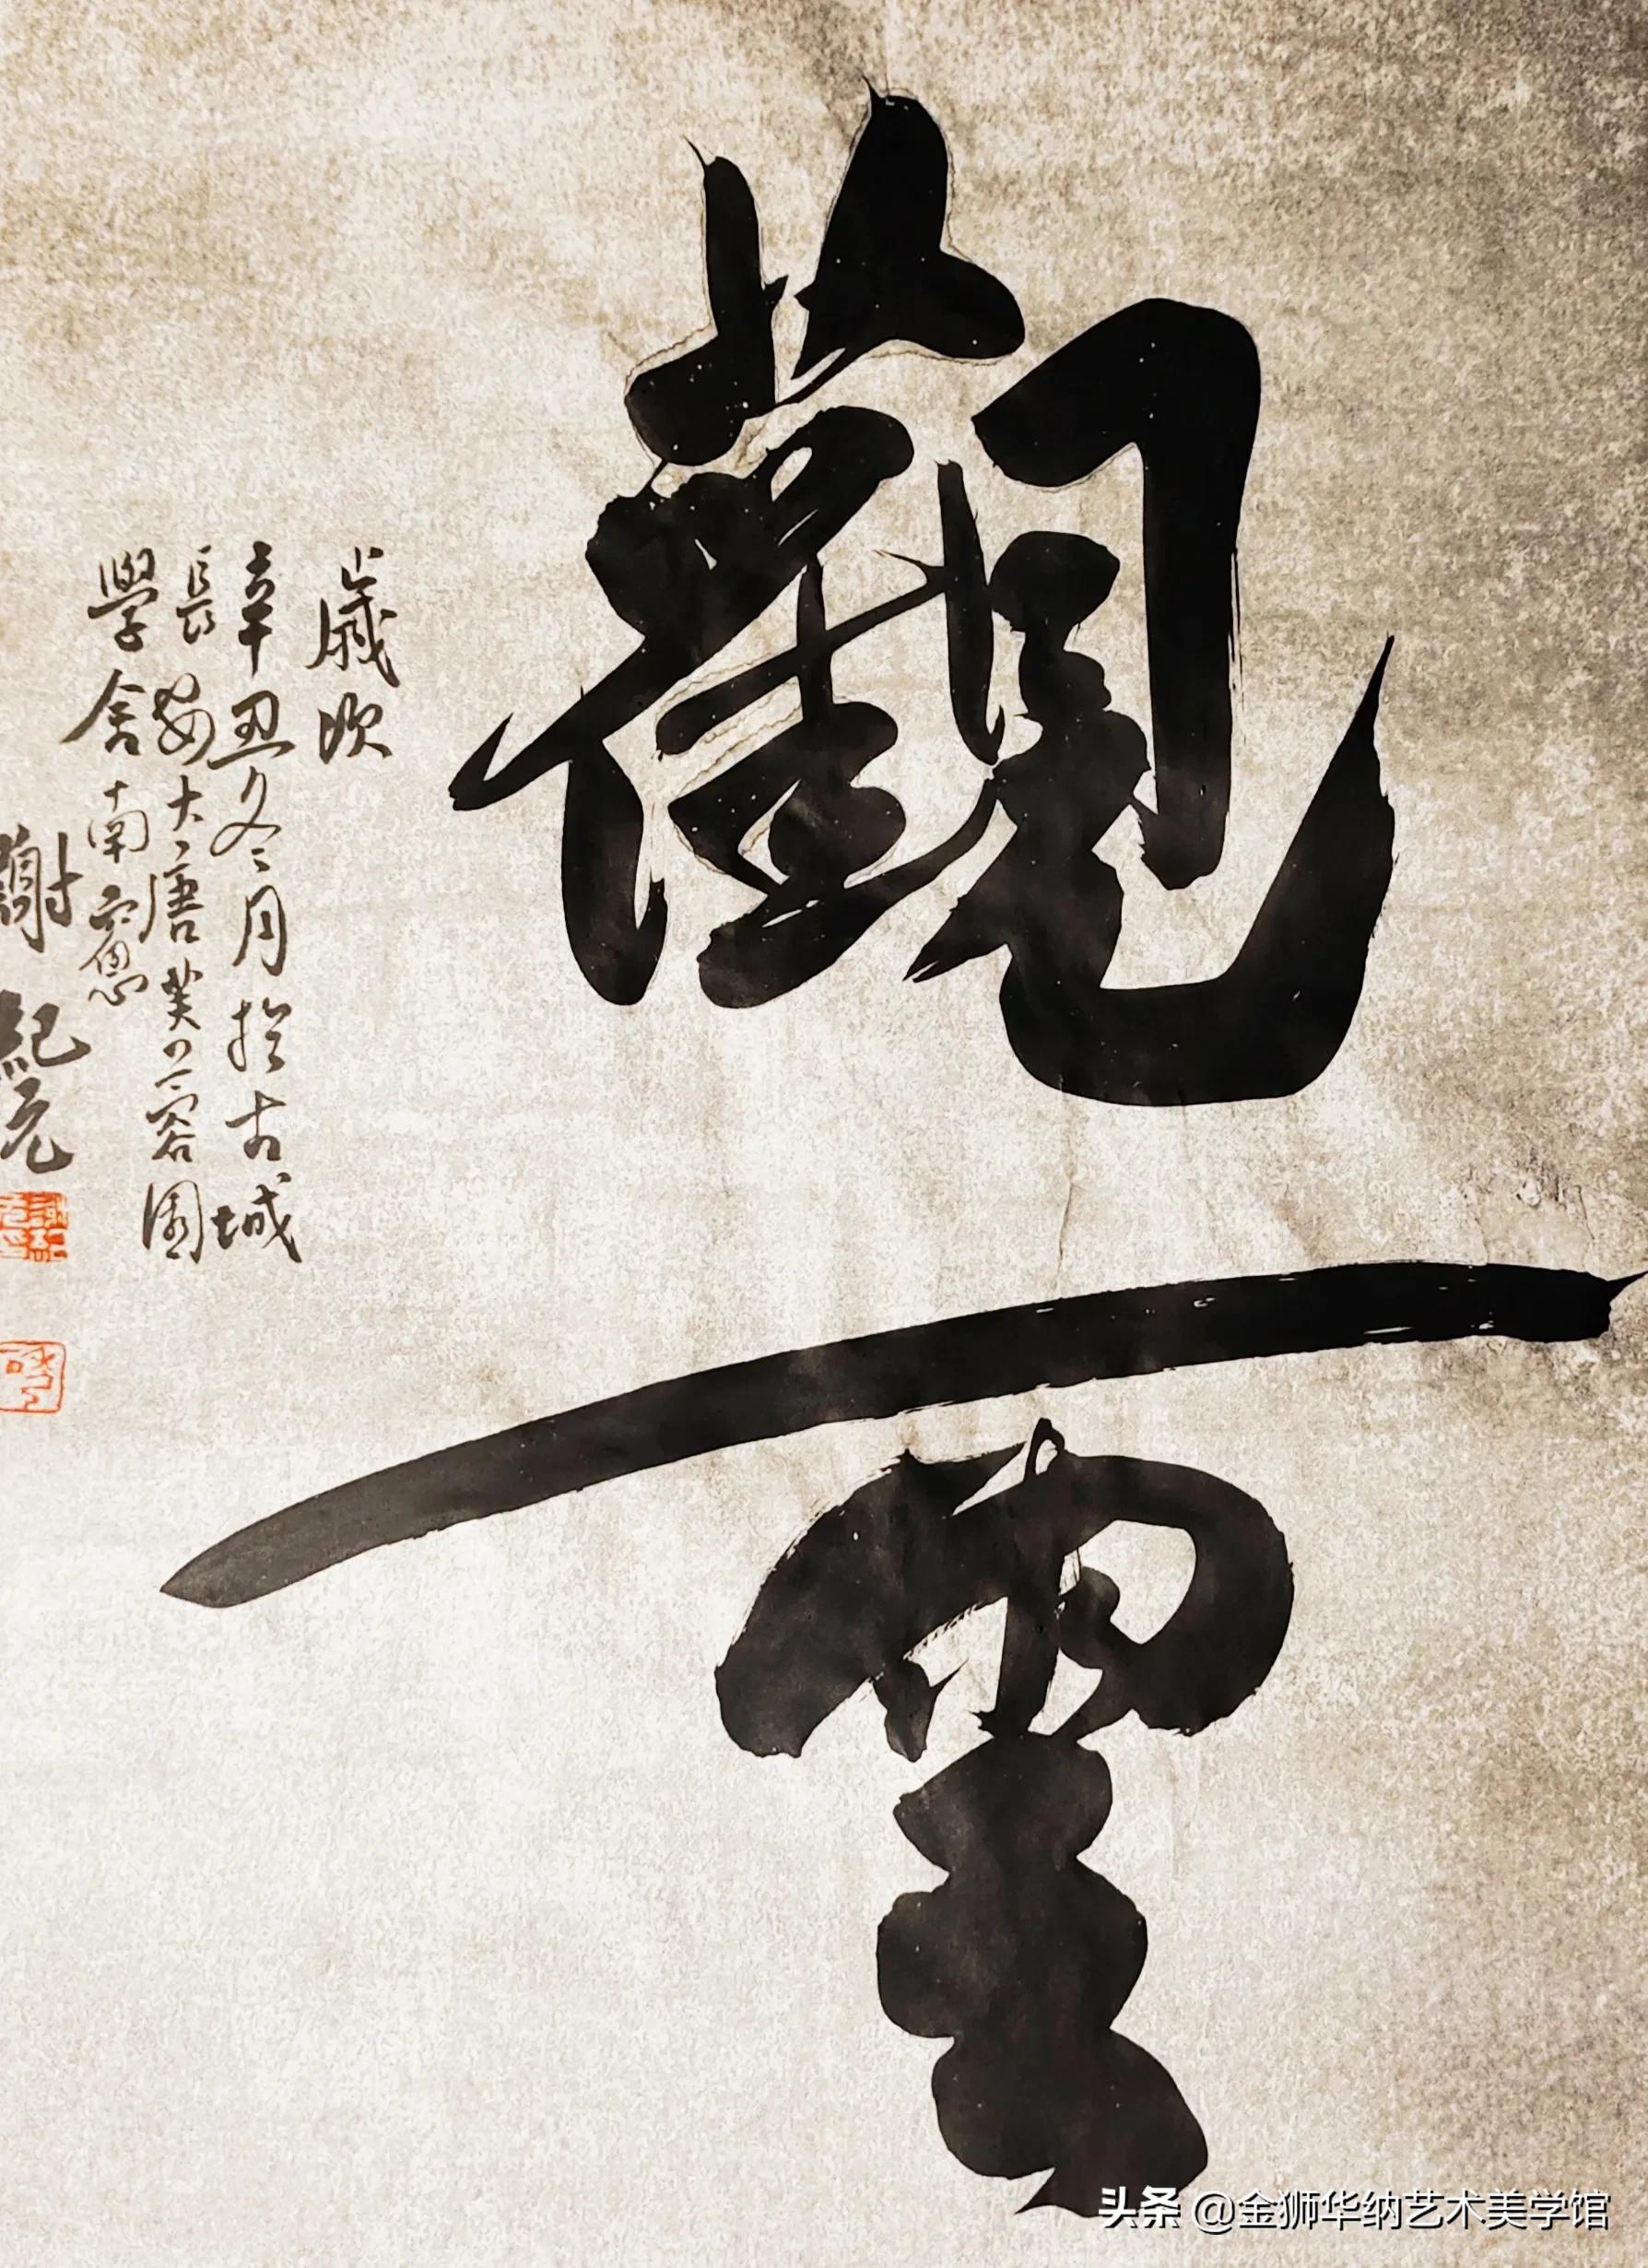 觀雲
歲次
辛丑冬月於古城
長安大唐芙蓉園
學舍南窻
謝紀元
头条 @金狮华纳艺术美学馆